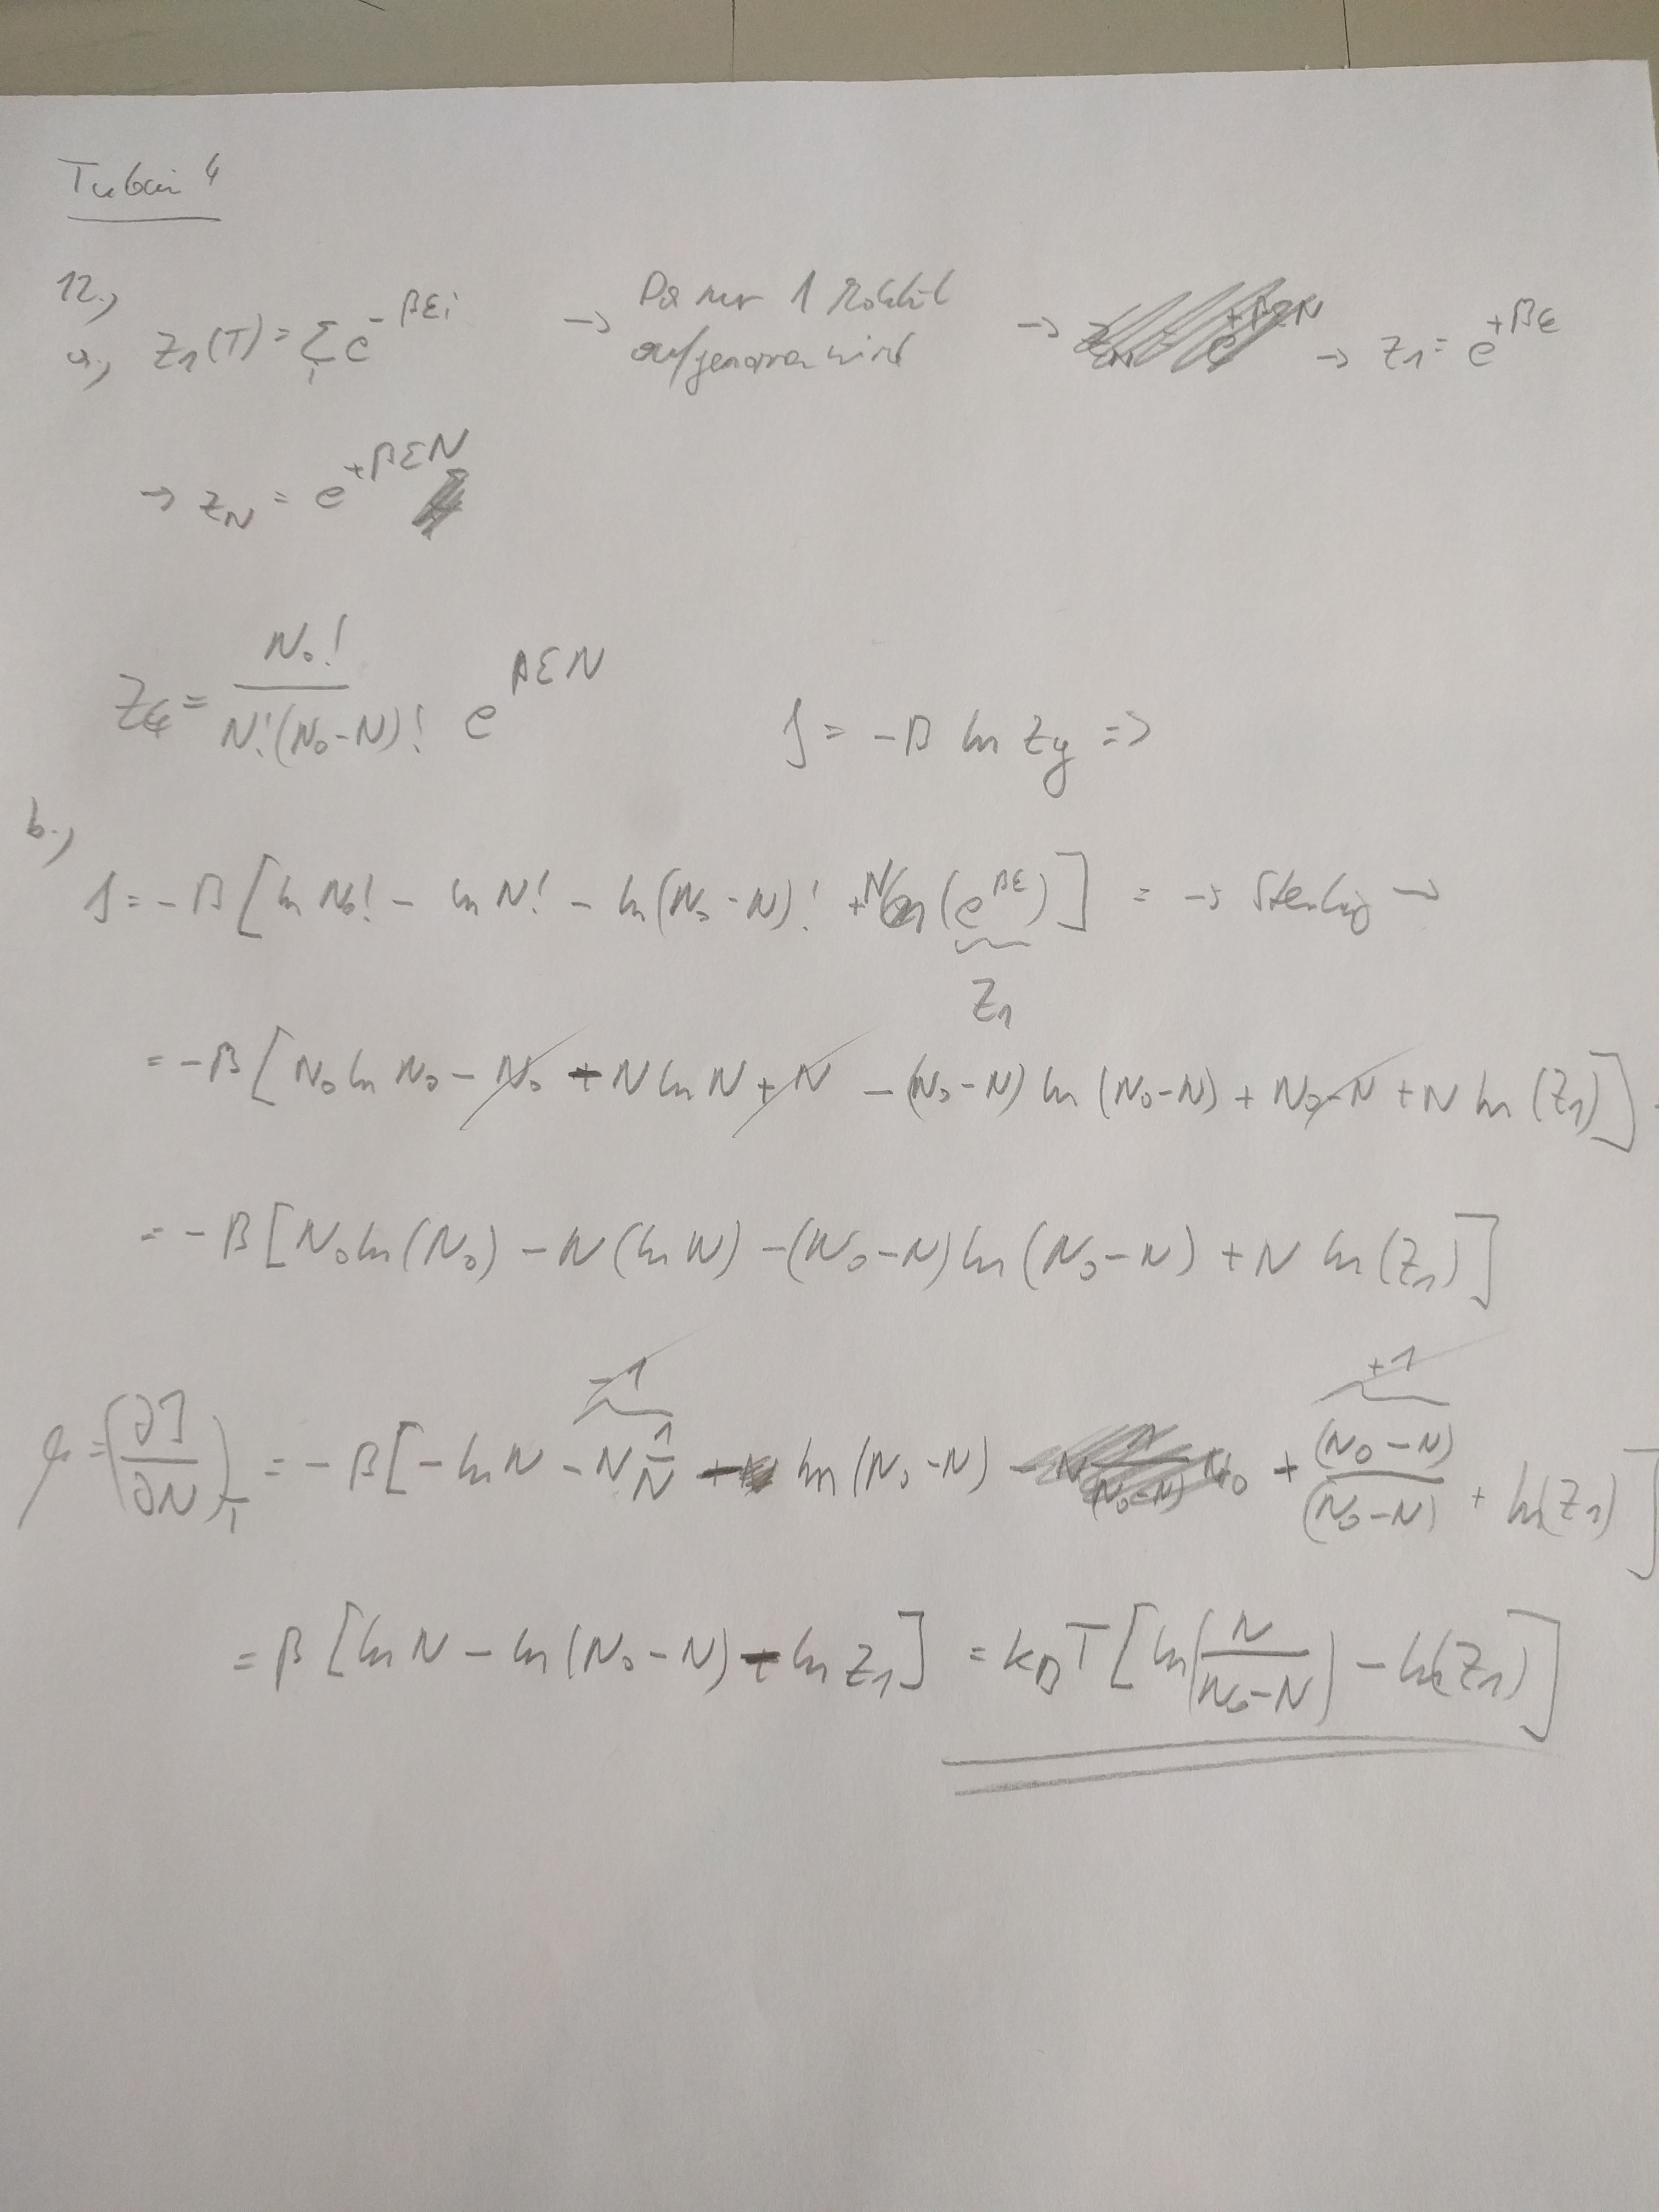 12.)
a.) Z₁(T) = Σᵢ e^(-βεᵢ) → Da nur 1 Molekül aufgenommen wird → → Z₁ = e^(+βε)
→ Z_N = e^(+βεN)
Z_G = N₀! / (N!(N₀-N)!) e^(βεN) J = -β ln Z_g =>
b.)
J = -β [ln N₀! - ln N! - ln(N₀-N)! + N ln(e^(βε))] = →
Z₁
= -β [N₀ ln N₀ - N₀ + N ln N + N - (N₀-N) ln (N₀-N) + N₀-N + N ln (Z₁)]
= -β [N₀ ln(N₀) - N(ln N) - (N₀-N) ln (N₀-N) + N ln (Z₁)]
-1 +1
μ = (∂J/∂N)_T = -β [-ln N - N 1/N + ln (N₀-N) + (N₀-N)/(N₀-N) + ln(Z₁)]
= β [ln N - ln (N₀-N) - ln Z₁] = k_B T [ln(N/(N₀-N)) - ln(Z₁)]